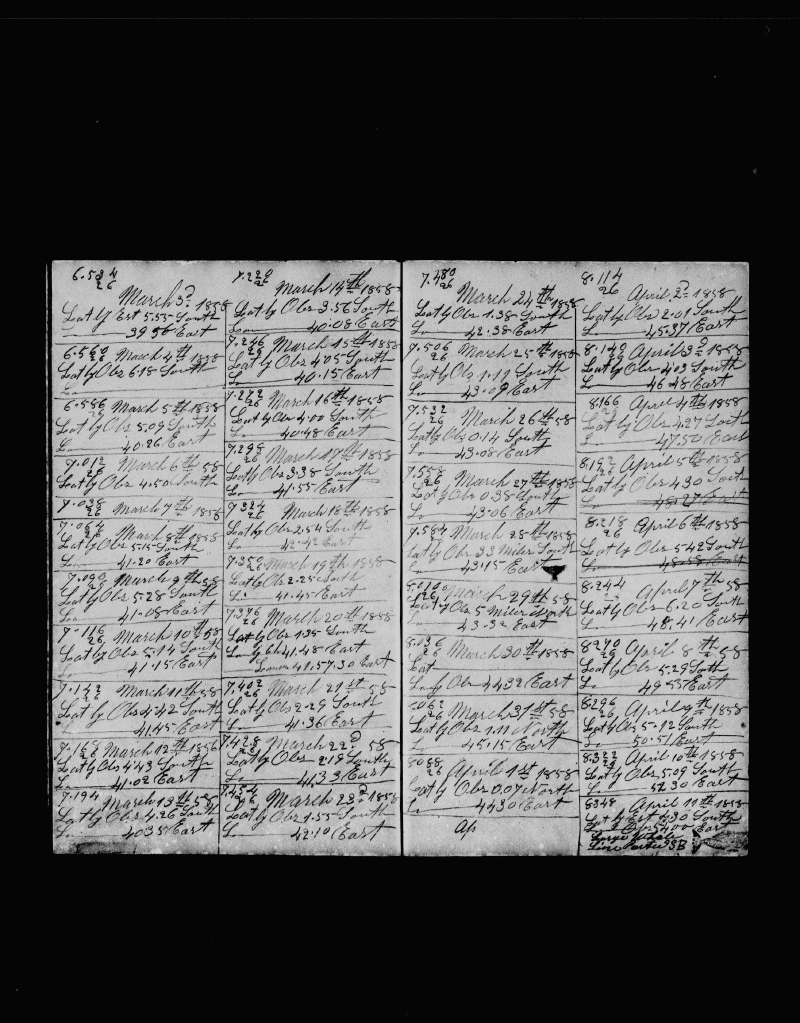 6.534
26
March 3d 1858
Lat by Est 5.55 South
39 56 East
6.560
26 March 4th 1858
Lat by Obs 6.18 South
Lo
6.586
26 March 5th 1858
Lat by Obs 5.09 South
Lo 40.26 East
7.012
26 March 6th 58
Lat by Obs 4.50 South
7.038
26 March 7th 1858
7.064
26 March 8th 1858
Lat by Obs 5.15 South
Lo 41.20 East
7.090
26 March 9th 58
Lat by Obs 5.28 South
Lo 41.08 East
7.116
26 March 10th 58
Lat by Obs 5.14 South
Lo 41.15 East
7.142
26 March 11th 58
Lat by Obs 4.42 South
Lo 41.45 East
7.168
26 March 12th 1858
Lat by Obs 4.43 South
Lo 41.02 East
7.194
March 13th 58
Lat by Obs 4.26 South
Lo 40.35 East
7.220
26
March 14th 1858
Lat by Obs 3.56 South
Lo 40.08 East
7.246
26 March 15th 1858
Lat by Obs 4.05 South
Lo 40.15 East
7.272
26 March 16th 1858
Lat by Obs 4.10 South
Lo 40.48 East
7.298
26 March 17th 1858
Lat by Obs 3.38 South
Lo 41.55 East
7.324
26 March 18th 1858
Lat by Obs 2.54 South
Lo 42.42 East
7.350
26 March 19th 1858
Lat by Obs 2.25 South
Lo 41.45 East
7.376
26 March 20th 1858
Lat by Obs 1.35 South
Lo by Ch 41.48 East
41.57.30 East
7.402
26 March 21st 58
Lat by Obs 2.29 South
Lo 41.36 East
7.428
26 March 22d 58
Lat by Obs 2.19 South
Lo 41.33 East
7.454
26 March 23d 1858
Lat by Obs 1.55 South
Lo 42.10 East
7.480
26
March 24th 1858
Lat by Obs 1.38 South
Lo 42.38 East
7.506
26 March 25th 1858
Lat by Obs 1.11 South
Lo 43.09 East
7.532
26 March 26th 58
Lat by Obs 0.14 South
Lo 43.08 East
7.558
26 March 27th 1858
Lat by Obs 0.38 South
Lo 43.06 East
7.584
26 March 28th 1858
Lat by Obs 33 Miles South
Lo 43.15 East
8.010
26 March 29th 58
Lat by Obs 5 Miles North
Lo 43.32 East
8.036
26 March 30th 1858
Lat
Lo by Obs 44.32 East
8.062
26 March 31st 58
Lat by Obs 1.11 North
Lo 45.15 East
8.088
26 April 1st 1858
Lat by Obs 0.07 North
Lo 44.30 East
Ap
8.114
26
April 2d 1858
Lat by Obs 2.01 South
Lo 45.37 East
8.140
26 April 3d 1858
Lat by Obs 4.03 South
Lo 46.48 East
8.166
26 April 4th 1858
Lat by Obs 4.27 South
Lo 47.50 East
8.192
26 April 5th 1858
Lat by Obs 4.30 South
Lo 48.27 East
8.218
26 April 6th 1858
Lat by Obs 5.42 South
Lo 48.58 East
8.244
26 April 7th 58
Lat by Obs 6.20 South
Lo 48.41 East
8.270
26 April 8th 58
Lat by Obs 5.29 South
Lo 49 55 East
8.296
26 April 9th 1858
Lat by Obs 5.12 South
Lo 50.51 East
8.322
26 April 10th 1858
Lat by Obs 5.09 South
Lo 52.30 East
8.348 April 11th 1858
Lat by Est 4.30 South
Lo 54.00 East